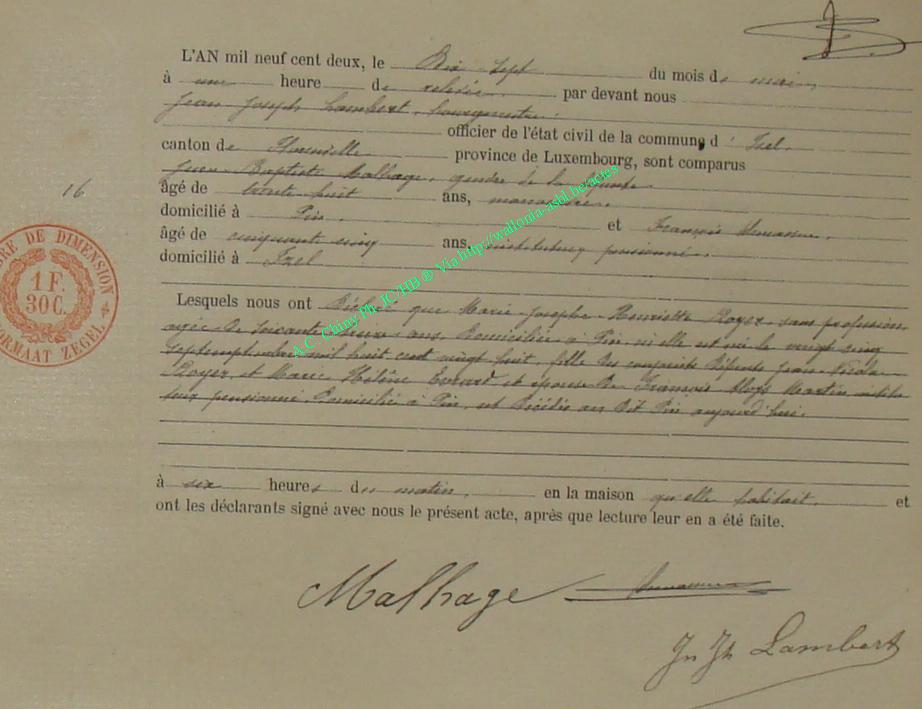 L'AN mil neuf cent deux, le Dix-sept du mois de mai,
à une heure de relevée, par devant nous
Jean Joseph Lambert, bourgmestre
officier de l'état civil de la commune d' Izel,
canton de Florenville province de Luxembourg, sont comparus
Jean Baptiste Malhage, gendre de la défunte
16
âgé de trente huit ans, manœuvre,
domicilié à Pin, et François
âgé de cinquante cinq ans, instituteur pensionné,
domicilié à Izel
RE DE DIMENSION
1 F.
30C.
FORMAAT ZEGEL
A.C. Chiny Ph. JC/HB ® Via http://wallonia-asbl.be/actes
Lesquels nous ont Déclaré que Marie-Josèphe-Henriette Royer, sans profession
âgée de soixante treize ans, Domiciliée à Pin, où elle est née le vingt cinq
septembre mil huit cent vingt huit, fille des conjoints Défunts Jean-Nicolas
Royer, et Marie-Hélène Evrard et épouse de François Martin, institu
teur pensionné Domicilié à Pin, est Décédée au Dit Pin aujourd'hui
à six heures du matin, en la maison qu'elle habitait, et
ont les déclarants signé avec nous le présent acte, après que lecture leur en a été faite.
Malhage
Jn Jh Lambert